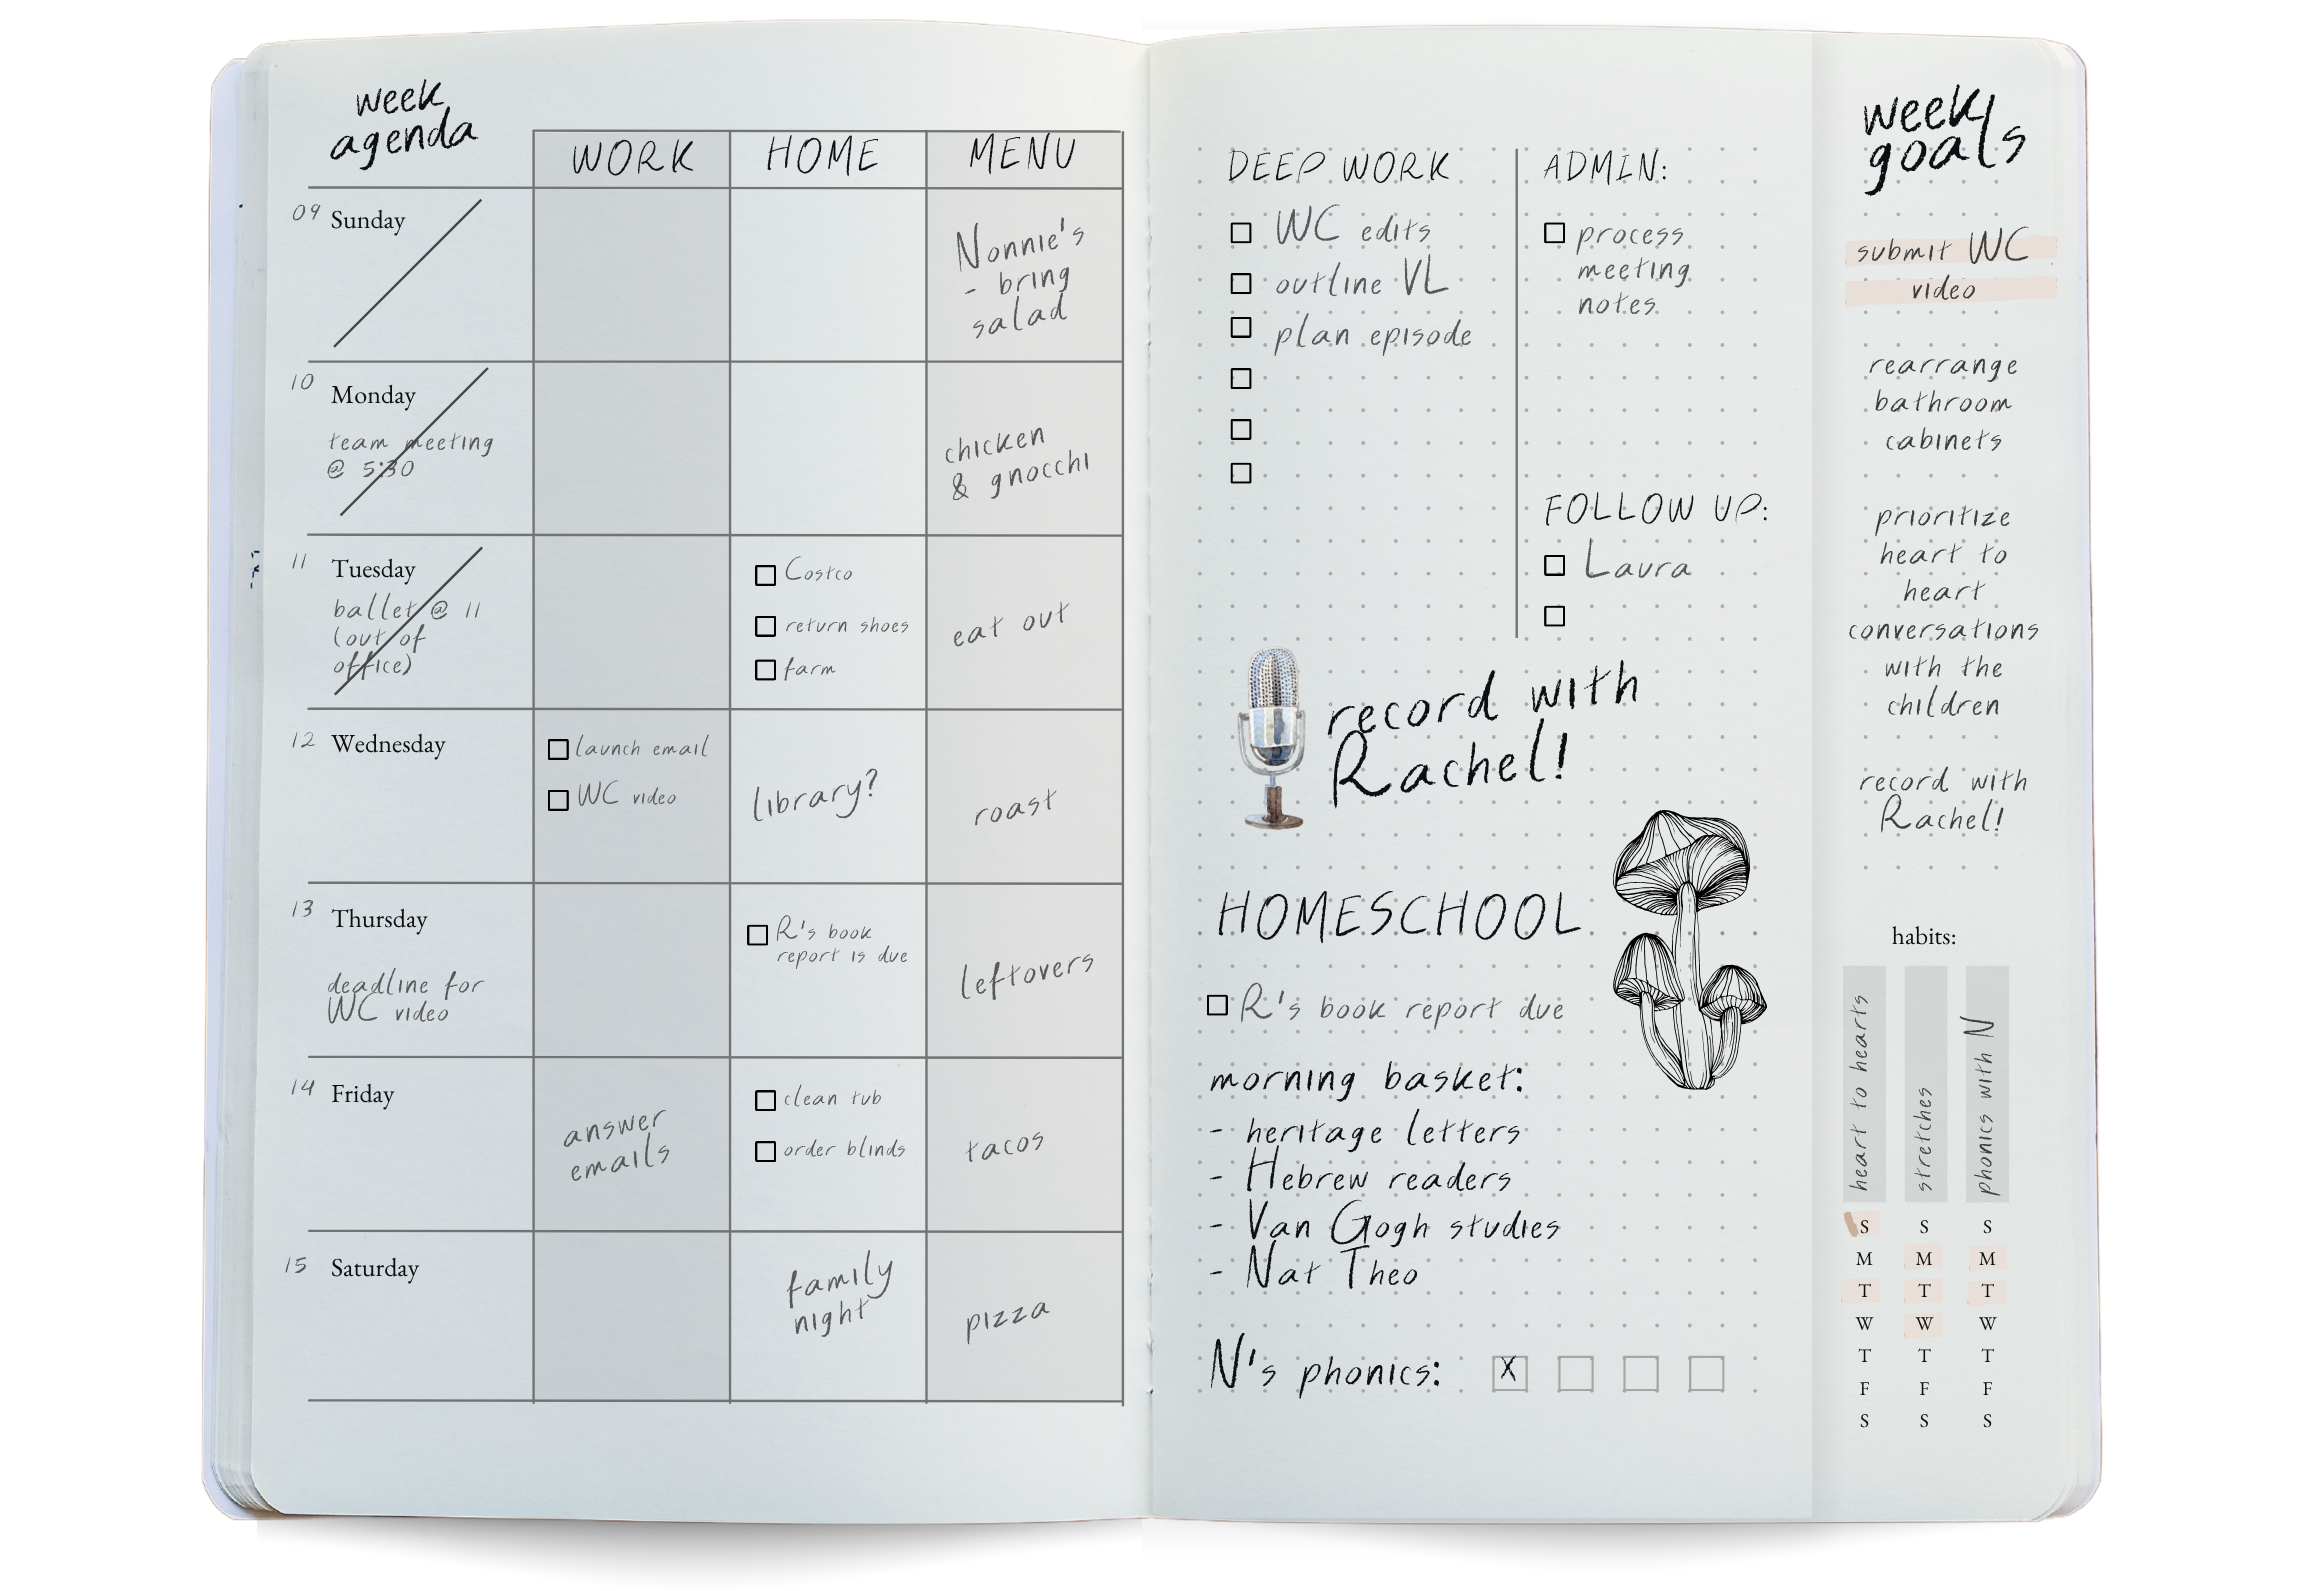 week
agenda
WORK HOME MENU
09 Sunday
Nonnie's
- bring
salad
10 Monday
team meeting
@ 5:30
chicken
& gnocchi
11 Tuesday
ballet @ 11
(out of
office)
Costco
return shoes
farm
eat out
12 Wednesday
launch email
WC video
library?
roast
13 Thursday
deadline for
WC video
R's book
report is due
leftovers
14 Friday
answer
emails
clean tub
order blinds
tacos
15 Saturday
family
night
pizza
DEEP WORK
WC edits
outline VL
plan episode
ADMIN:
process
meeting
notes
FOLLOW UP:
Laura
record with
Rachel!
HOMESCHOOL
R's book report due
morning basket:
- heritage letters
- Hebrew readers
- Van Gogh studies
- Nat Theo
N's phonics: X
week
goals
submit WC
video
rearrange
bathroom
cabinets
prioritize
heart to
heart
conversations
with the
children
record with
Rachel!
habits:
heart to hearts
stretches
phonics with N
S S S
M M M
T T T
W W W
T T T
F F F
S S S